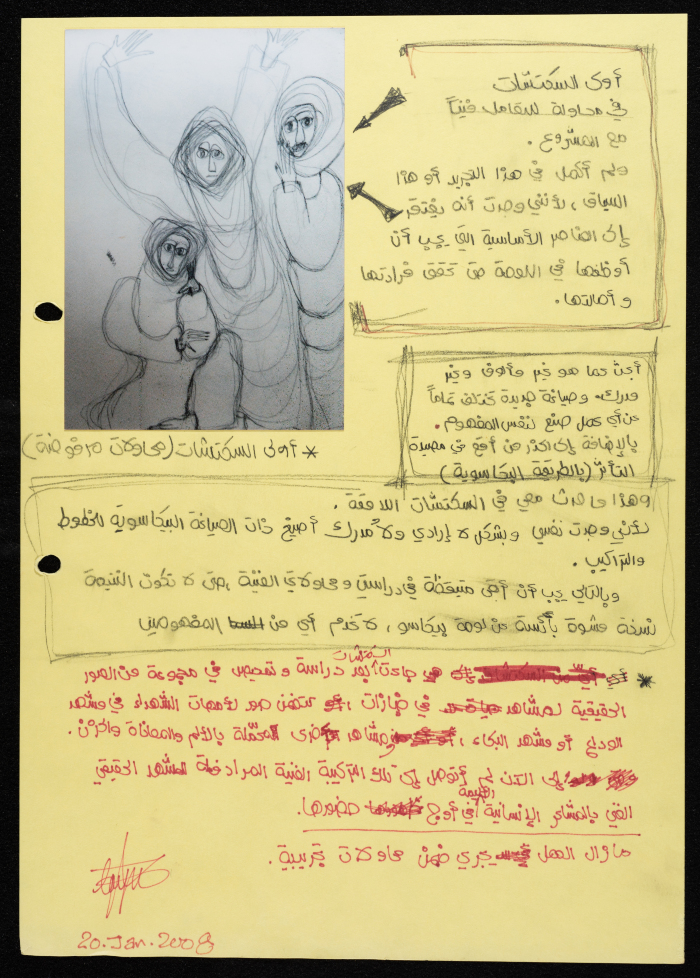 أولى السكتشات
في محاولة للتعامل فنياً
مع المشروع.
ولم أكمل في هذا التجريد أو هذا
السياق، لأنني وجدت أنه يفتقر
إلى العناصر الأساسية التي يجب أن
أوظفها في اللوحة حتى تحقق فرادتها
وأصالتها.
أبحث عما هو غير مألوف وغير
مدرك وصياغة جديدة تختلف تماماً
عن أي عمل صنع لنفس المفهوم.
بالإضافة إلى الحذر من أقع في مصيدة
التأثر (بالطريقة البيكاسوية)
* أولى السكتشات (محاولات مرفوضة)
وهذا ما حدث معي في السكتشات اللاحقة.
لأنني وجدت نفسي وبشكل لا إرادي ولا مدرك أصيغ ذات الصياغة البيكاسوية للخطوط
والتراكيب.
وبالتالي يجب أن أبقى متيقظة في دراستي ومحاولاتي الفنية، حتى لا تكون النتيجة
نسخة مشوة بائسة عن لوحة بيكاسو، لا تخدم أي من المفهومين
* السكتشات جاءت بعد دراسة وتمحيص في مجموعة من الصور
الحقيقية لمشاهد في جنازات، تتضمن صور لأمهات الشهداء في مشهد
الوداع أو مشهد البكاء، مشاهد أخرى محمّلة بالألم والمعاناة والحزن.
إلى الآن لم أتوصل إلى تلك التركيبة الفنية المرادفة للمشهد الحقيقي
الغني بالمشاعر الإنسانية الأليمة في أوج حضورها.
ما زال العمل يجري ضمن محاولات تجريبية.
20.Jan.2008